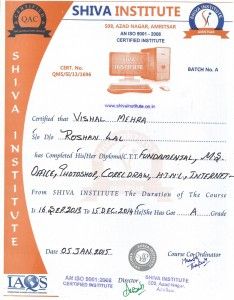 SHIVA INSTITUTE
509, AZAD NAGAR, AMRITSAR
AN ISO 9001 - 2008
CERTIFIED INSTITUTE
QAC
CERT. No:
QMS/SI/13/1696
BATCH No. A
www.shivainstitute.co.in
SHIVA INSTITUTE
Certified that VISHAL MEHRA
S/o D/o ROSHAN LAL
has Completed His/Her Diploma/C.T.T. FUNDAMENTAL, M.S.
OFFICE, PHOTOSHOP, CORELDRAW, HTML, INTERNET-
From SHIVA INSTITUTE The Duration of the Course
Is 16 SEP 2013 To 15 DEC. 2014 He/She Has Got A Grade
Date 05 JAN. 2015
Course Co-Ordinator
IAQS
AN ISO 9001-2008
CERTIFIED
INSTITUTE
Director
SHIVA INSTITUTE